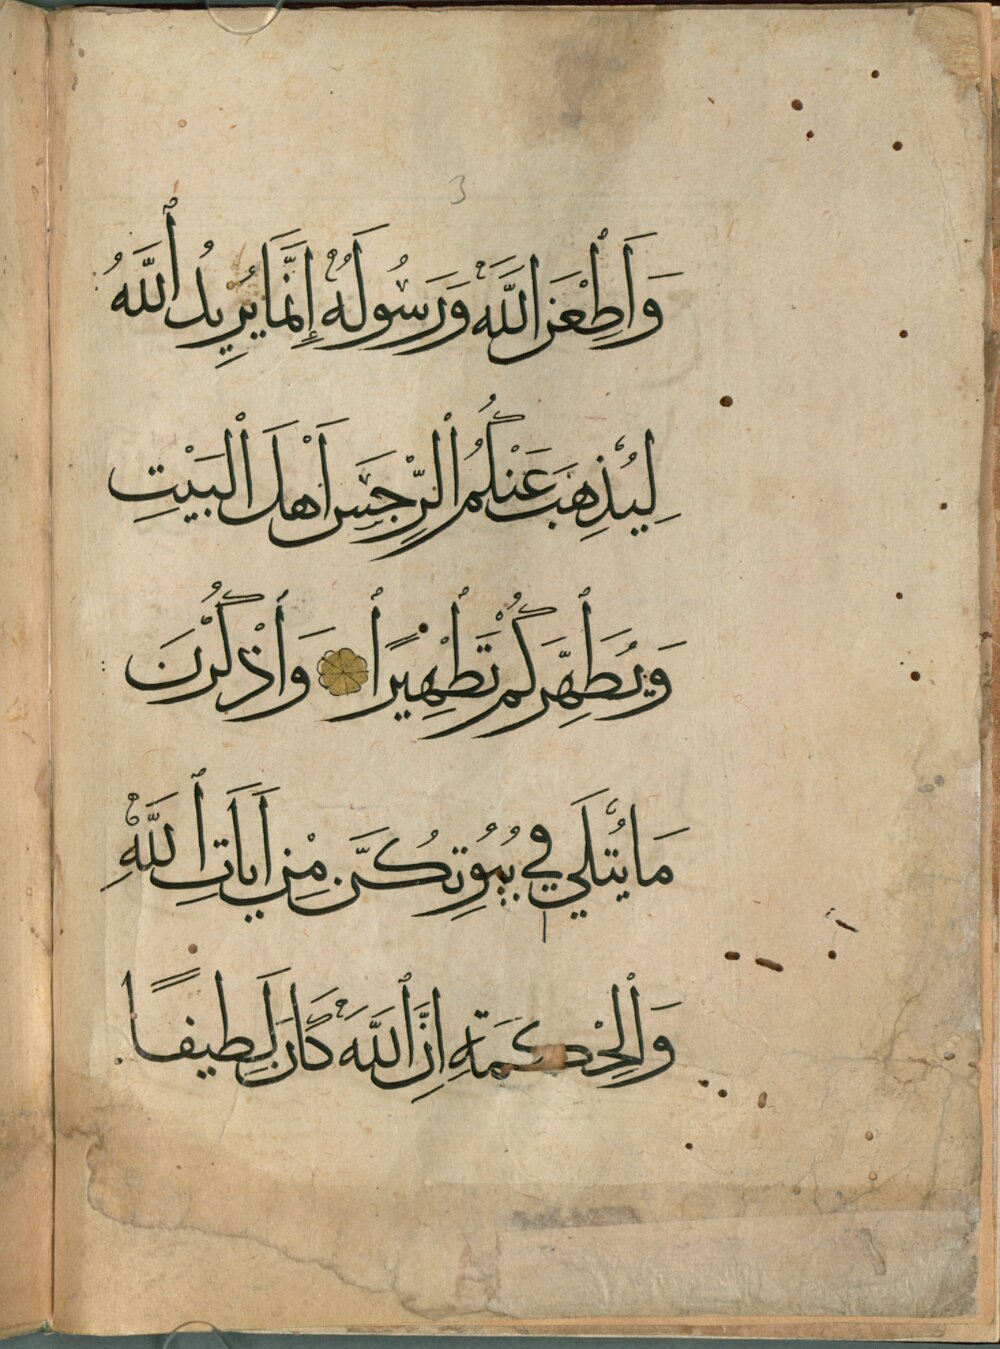 3
وَاَطِعْنَ اللَّهَ وَرَسُولَهُ إِنَّمَا يُرِيدُ ٱللَّهُ
لِيُذْهِبَ عَنْكُمُ ٱلرِّجْسَ اَهْلَ ٱلْبَيْتِ
وَيُطَهِّرَكُمْ تَطْهِيرًا وَٱذْكُرْنَ
مَا يُتْلَي فِي بُيُوتِكُنَّ مِنْ اَيَاتِ ٱللَّهِ
وَٱلْحِكْمَةِ اِنَّ ٱللَّهَ كَانَ لَطِيفًا